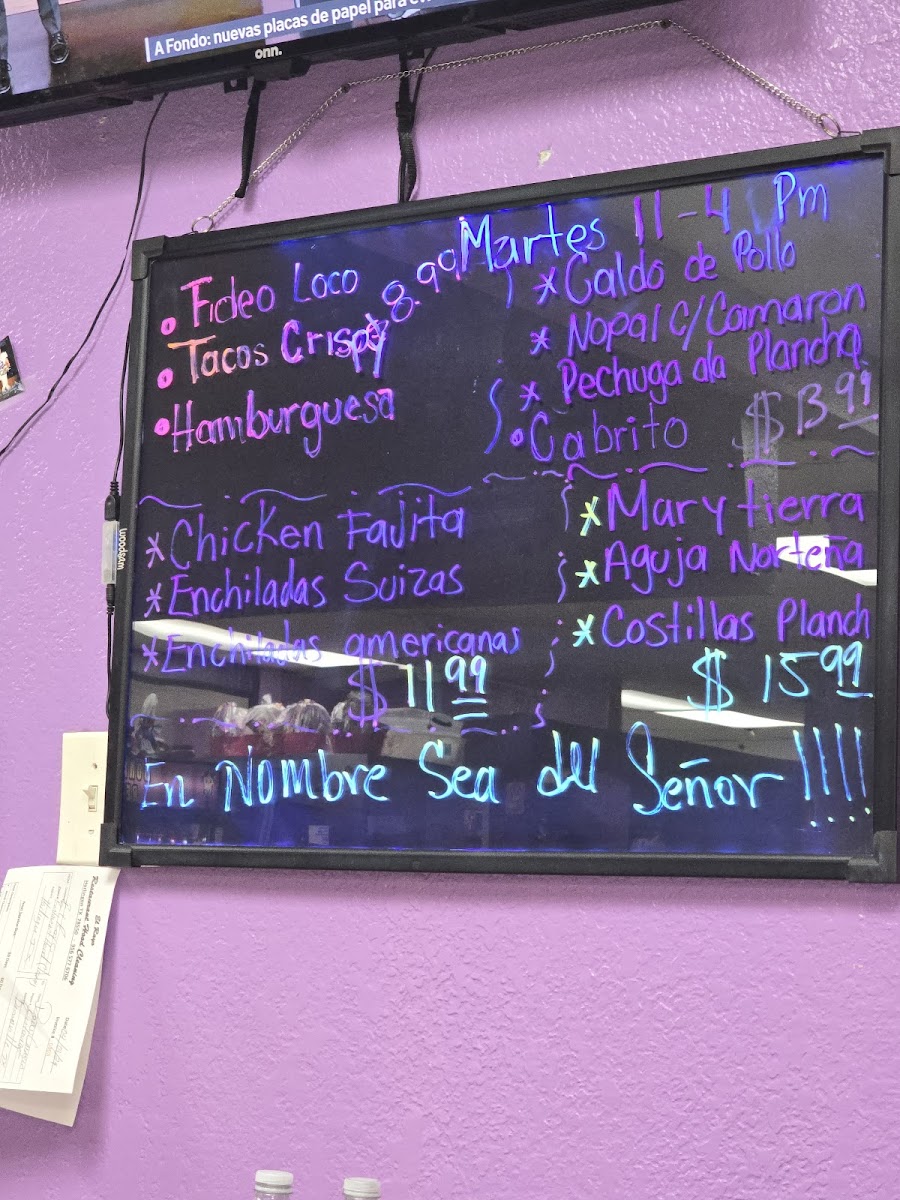 A Fondo: nuevas placas de papel para
onn.
Martes 11-4 Pm
• Fideo Loco
8.99
• Tacos Crispy
• Hamburguesa
* Caldo de Pollo
* Nopal c/Camaron
* Pechuga ala Plancha
• Cabrito $13.99
* Chicken Fajita
* Enchiladas Suizas
* Enchiladas americanas
$11.99
* Mar y tierra
* Aguja Norteña
* Costillas Planch
$15.99
En Nombre Sea del Señor!!!!
woodsam
El Rayo
Restaurant Hood Cleaning